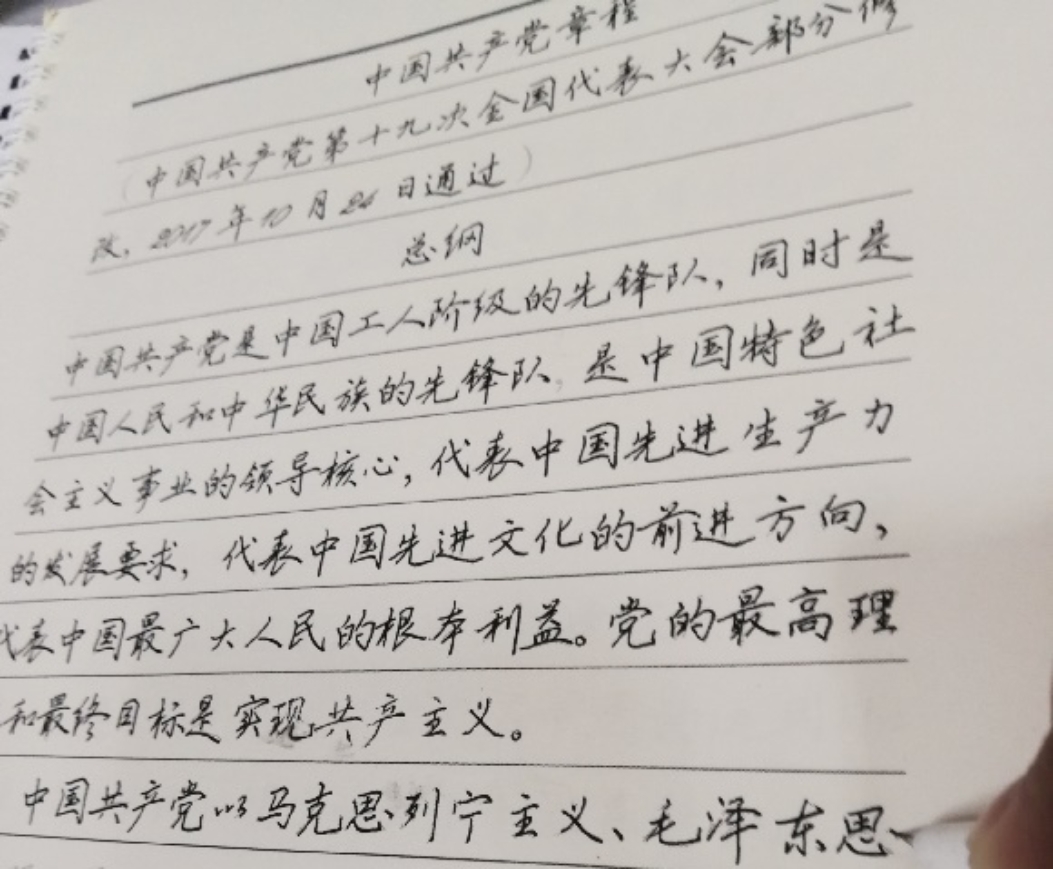 中国共产党章程
（中国共产党第十九次全国代表大会部分修
改，2017年10月24日通过）
总纲
中国共产党是中国工人阶级的先锋队，同时是
中国人民和中华民族的先锋队，是中国特色社
会主义事业的领导核心，代表中国先进生产力
的发展要求，代表中国先进文化的前进方向，
代表中国最广大人民的根本利益。党的最高理
和最终目标是实现共产主义。
中国共产党以马克思列宁主义、毛泽东思